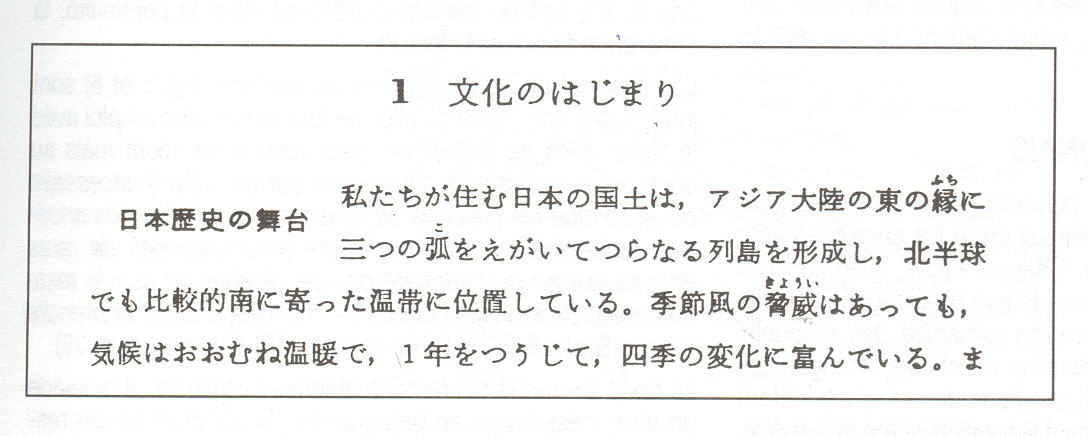 1 文化のはじまり
日本歴史の舞台
私たちが住む日本の国土は，アジア大陸の東の縁に
三つの弧をえがいてつらなる列島を形成し，北半球
でも比較的南に寄った温帯に位置している。季節風の脅威はあっても，
気候はおおむね温暖で，1年をつうじて，四季の変化に富んでいる。ま